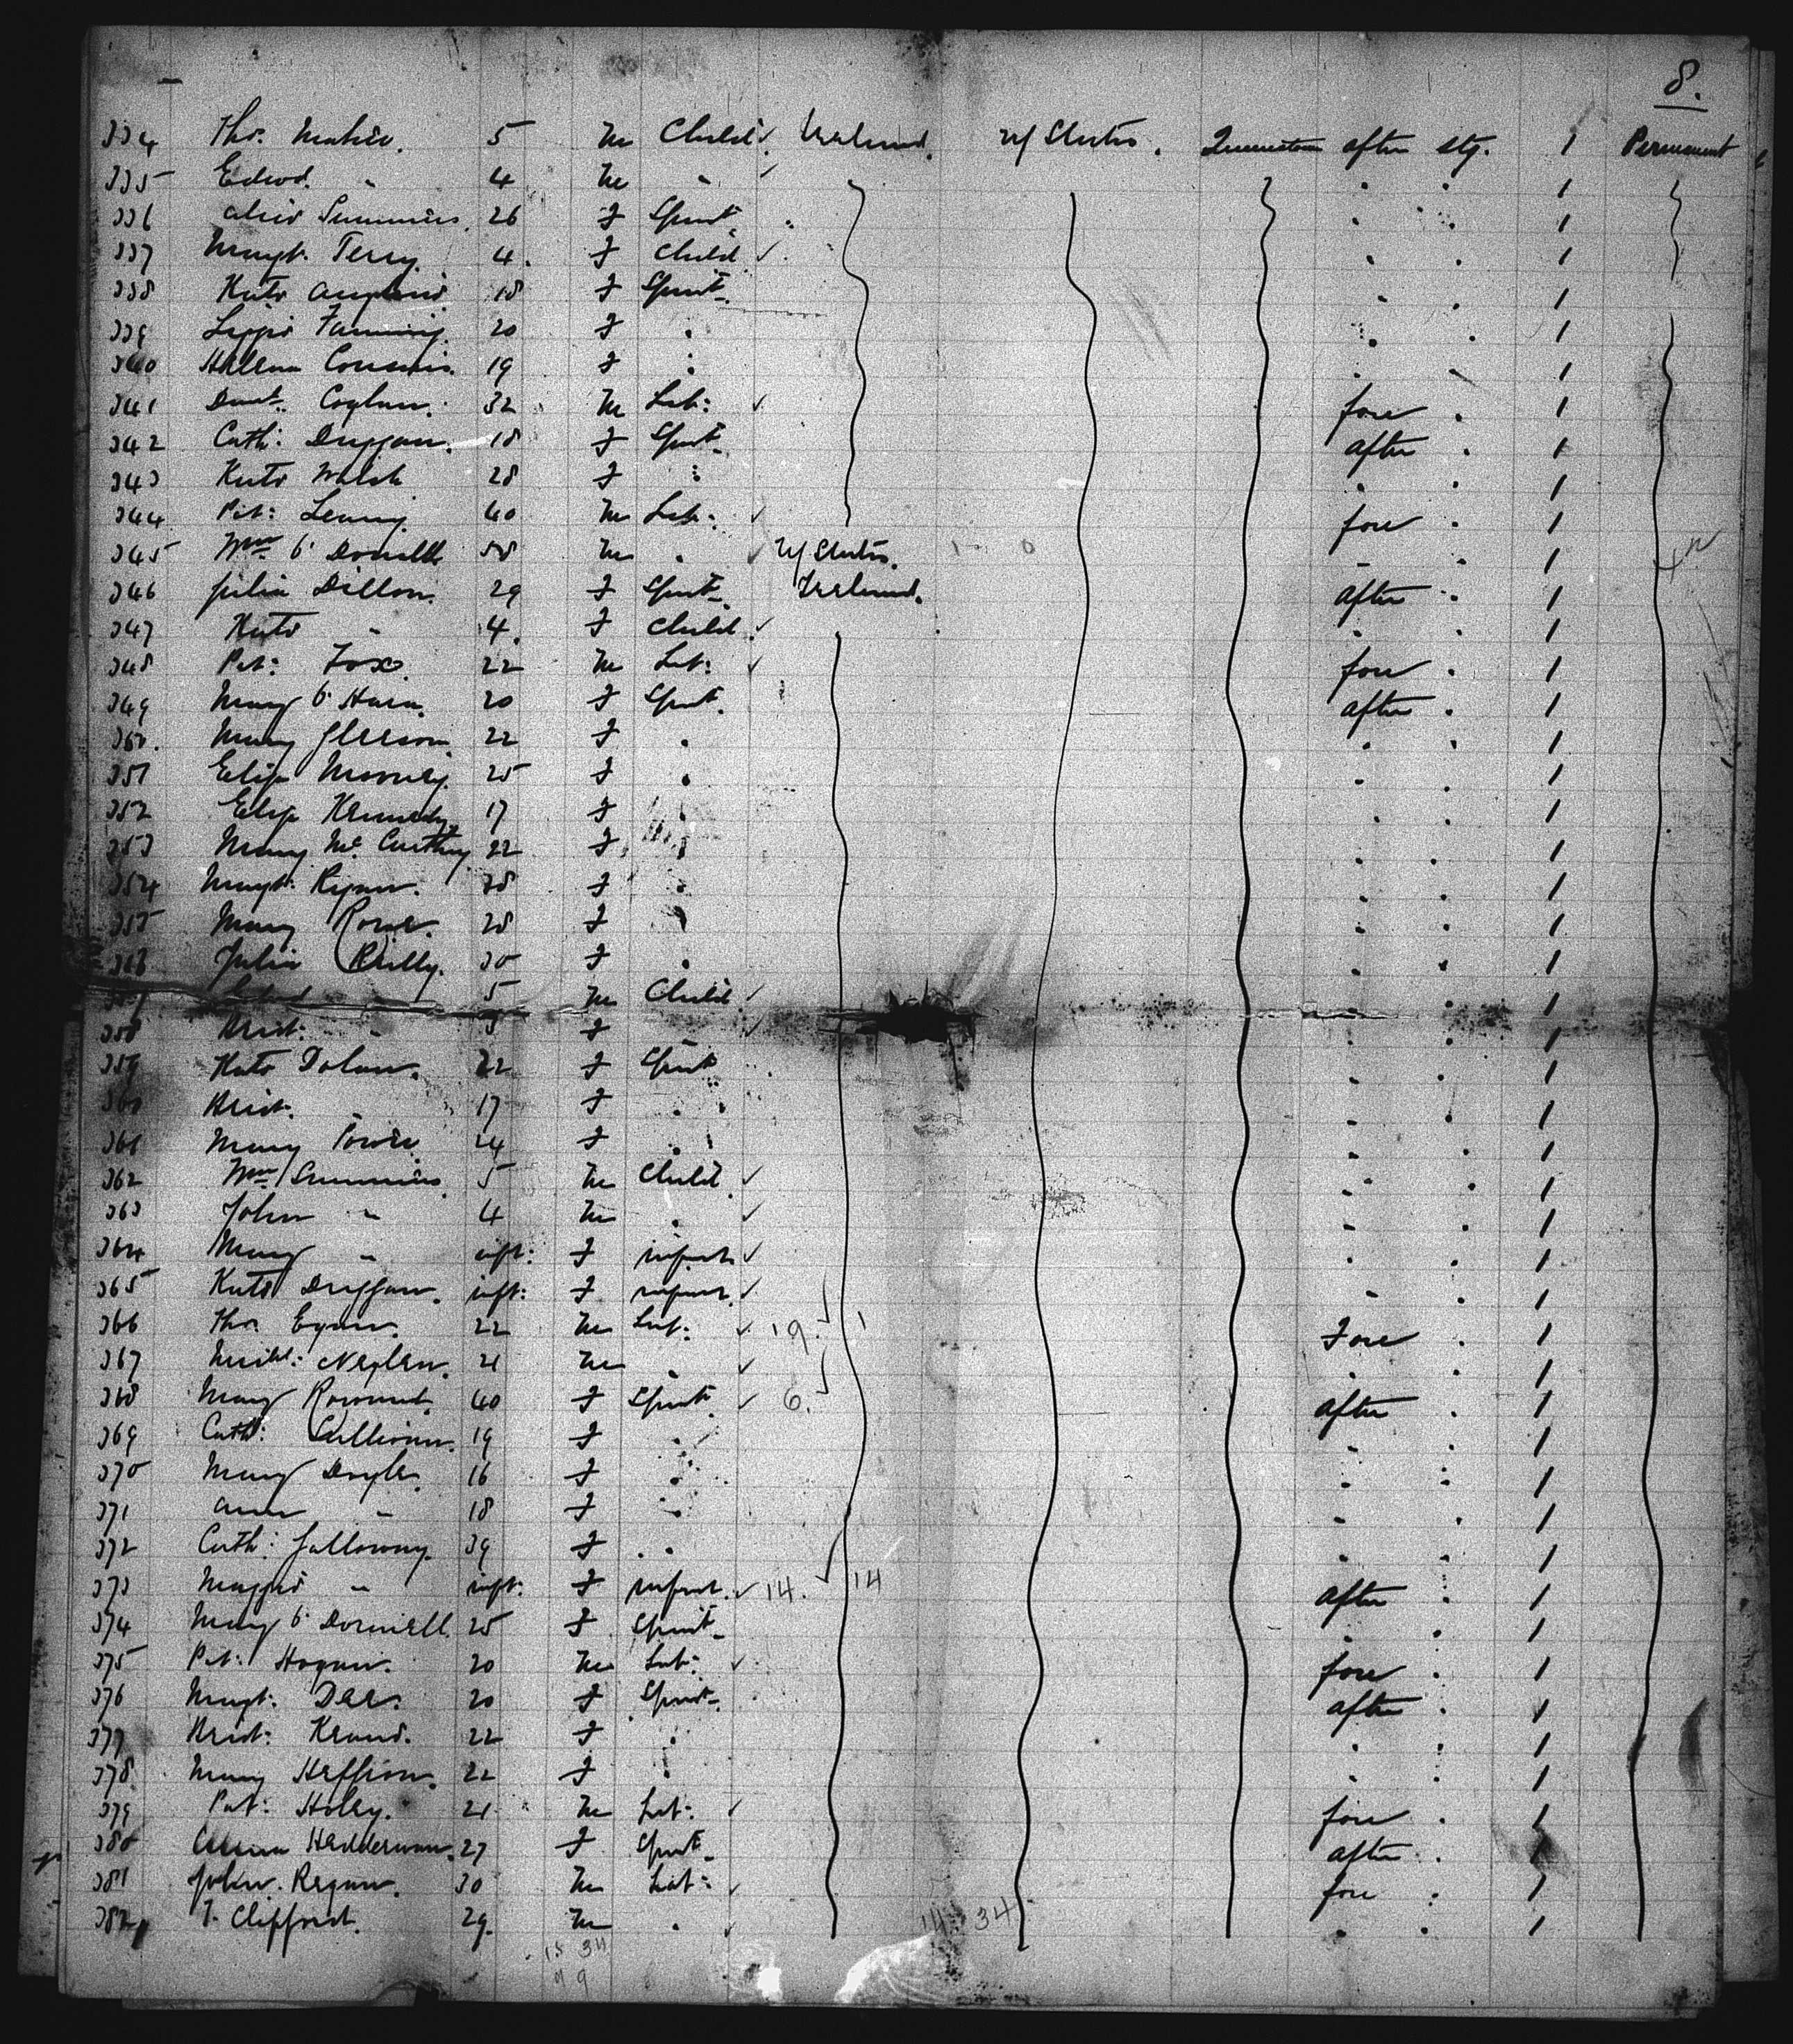 8.
334 Thos. Maher. 5 M Child Ireland. U/States. Queenstown after Stg. 1 Permanent
335 Edwd. " 4 M " " " 1
336 Alice Summers. 26 F Spinst " " 1
337 Margt. Terry. 4. F Child " " 1
338 Kate 18 F Spinst. " " 1
339 Lizzie Fanning. 20 F " " " 1
340 Helena Cousins. 19 F " " " 1
341 Danl. Coghlan. 32 M Lab: fore " 1
342 Cath: Duggan. 18 F Spinst. after " 1
343 Kate Walsh 28 F " " " 1
344 Pat: Leamy. 40 M Lab: fore " 1
345 Wm O'Donnell M " U/States. " " 1
346 Julia Dillon. 29 F Spinst. Ireland. after " 1
347 Kate " 4. F Child " " 1
348 Pat: Fox. 22 M Lab: fore " 1
349 Mary O'Hara. 20 F Spinst. after " 1
350. Mary Gleeson. 22 F " " " 1
351 Eliza Mooney. 25 F " " " 1
352 Eliza Kennedy. 17 F " " " 1
353 Mary McCarthy 22 F " " " 1
354 Margt. Ryan. F " " " 1
355 Mary Rowe. F " " " 1
356 Julia Reilly. 30 F " " " 1
5 M Child " " 1
358 Brid: " 3 F " " 1
359 Kate Dolan. 22 F Spinst " " 1
360 Brid: " 17 F " " " 1
361 Mary Power. 24 F " " " 1
362 Wm Summers. 5 M Child " " 1
363 John " 4 M " " " 1
364 Mary " inft: F infant " " 1
365 Kate Duggan. inft: F infant. " " 1
366 Thos. Egan. 22 M Lab: 19. 1 Fore " 1
367 Michl: Neylan. 21 M " " " 1
368 Mary 40 F Spinst. 6. after " 1
369 Cath: Sullivan. 19 F " " " 1
370 Mary Doyle. 16 F " " " 1
371 Ann " 18 F " " " 1
372 Cath: Galloway. 39 F " " " 1
373 Maggie " inft: F infant. 14. 14 after " 1
374 Mary O'Donnell. 25 F Spinst. " " 1
375 Pat: Hogan. 20 M Lab: fore " 1
376 Margt: Dee. 20 F Spinst. after " 1
377 Brid: Keane. 22 F " " " 1
378 Mary Heffron. 22 F " " " 1
379 Pat: Holey. 21 M Lab: fore " 1
380 Hedderman. 27 F Spinst. after " 1
381 John Regan. 30 M Lab: fore " 1
382 T. Clifford. 29. M " " " 1
14 34
15 34